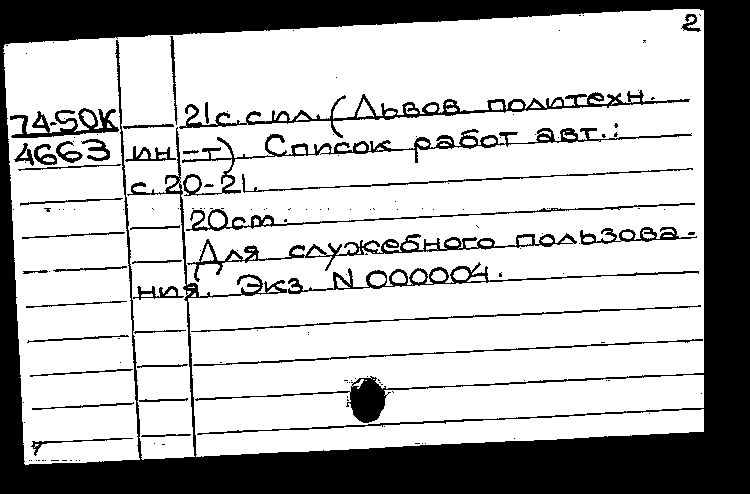 2
74-50К 21с. с ил. (Львов. политехн.
4663 ин-т). Список работ авт.:
с. 20-21.
20 см.
Для служебного пользова-
ния. Экз. N 000004.
7